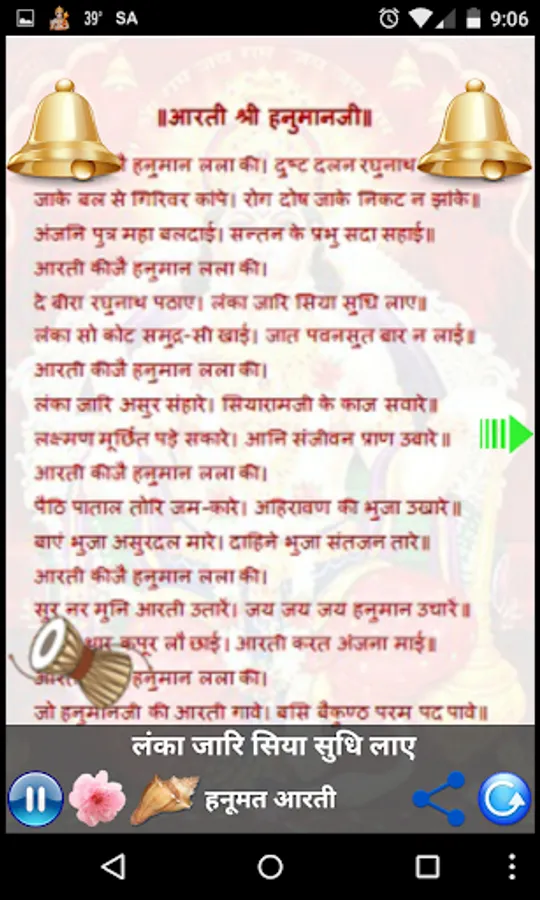 39° SA 9:06
॥आरती श्री हनुमानजी॥
हनुमान लला की। दुष्ट दलन रघुनाथ
जाके बल से गिरिवर कांपे। रोग दोष जाके निकट न झांके॥
अंजनि पुत्र महा बलदाई। सन्तन के प्रभु सदा सहाई॥
आरती कीजै हनुमान लला की।
दे बीरा रघुनाथ पठाए। लंका जारि सिया सुधि लाए॥
लंका सो कोट समुद्र-सी खाई। जात पवनसुत बार न लाई॥
आरती कीजै हनुमान लला की।
लंका जारि असुर संहारे। सियारामजी के काज सवारे॥
लक्ष्मण मूर्छित पड़े सकारे। आनि संजीवन प्राण उबारे॥
आरती कीजै हनुमान लला की।
पैठि पाताल तोरि जम-कारे। अहिरावण की भुजा उखारे॥
बाएं भुजा असुरदल मारे। दाहिने भुजा संतजन तारे॥
आरती कीजै हनुमान लला की।
सुर नर मुनि आरती उतारें। जय जय जय हनुमान उचारें॥
थार कपूर लौ छाई। आरती करत अंजना माई॥
हनुमान लला की।
जो हनुमानजी की आरती गावे। बसि बैकुण्ठ परम पद पावे॥
लंका जारि सिया सुधि लाए
हनूमत आरती